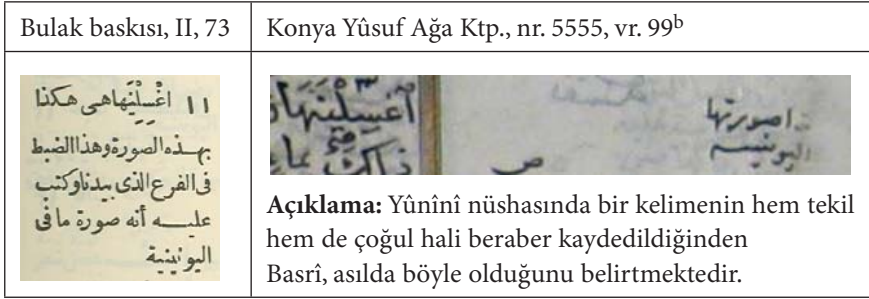 Bulak baskısı, II, 73
Konya Yûsuf Ağa Ktp., nr. 5555, vr. 99b
١١ اغْسِلْنَهَا هى هكذا
بهذه الصورة وهذا الضبط
فى الفرع الذى بيدنا وكتب
عليه أنه صورة ما فى
اليونينية
ص
صورتها
اليونينية
Açıklama: Yûnînî nüshasında bir kelimenin hem tekil
hem de çoğul hali beraber kaydedildiğinden
Basrî, asılda böyle olduğunu belirtmektedir.